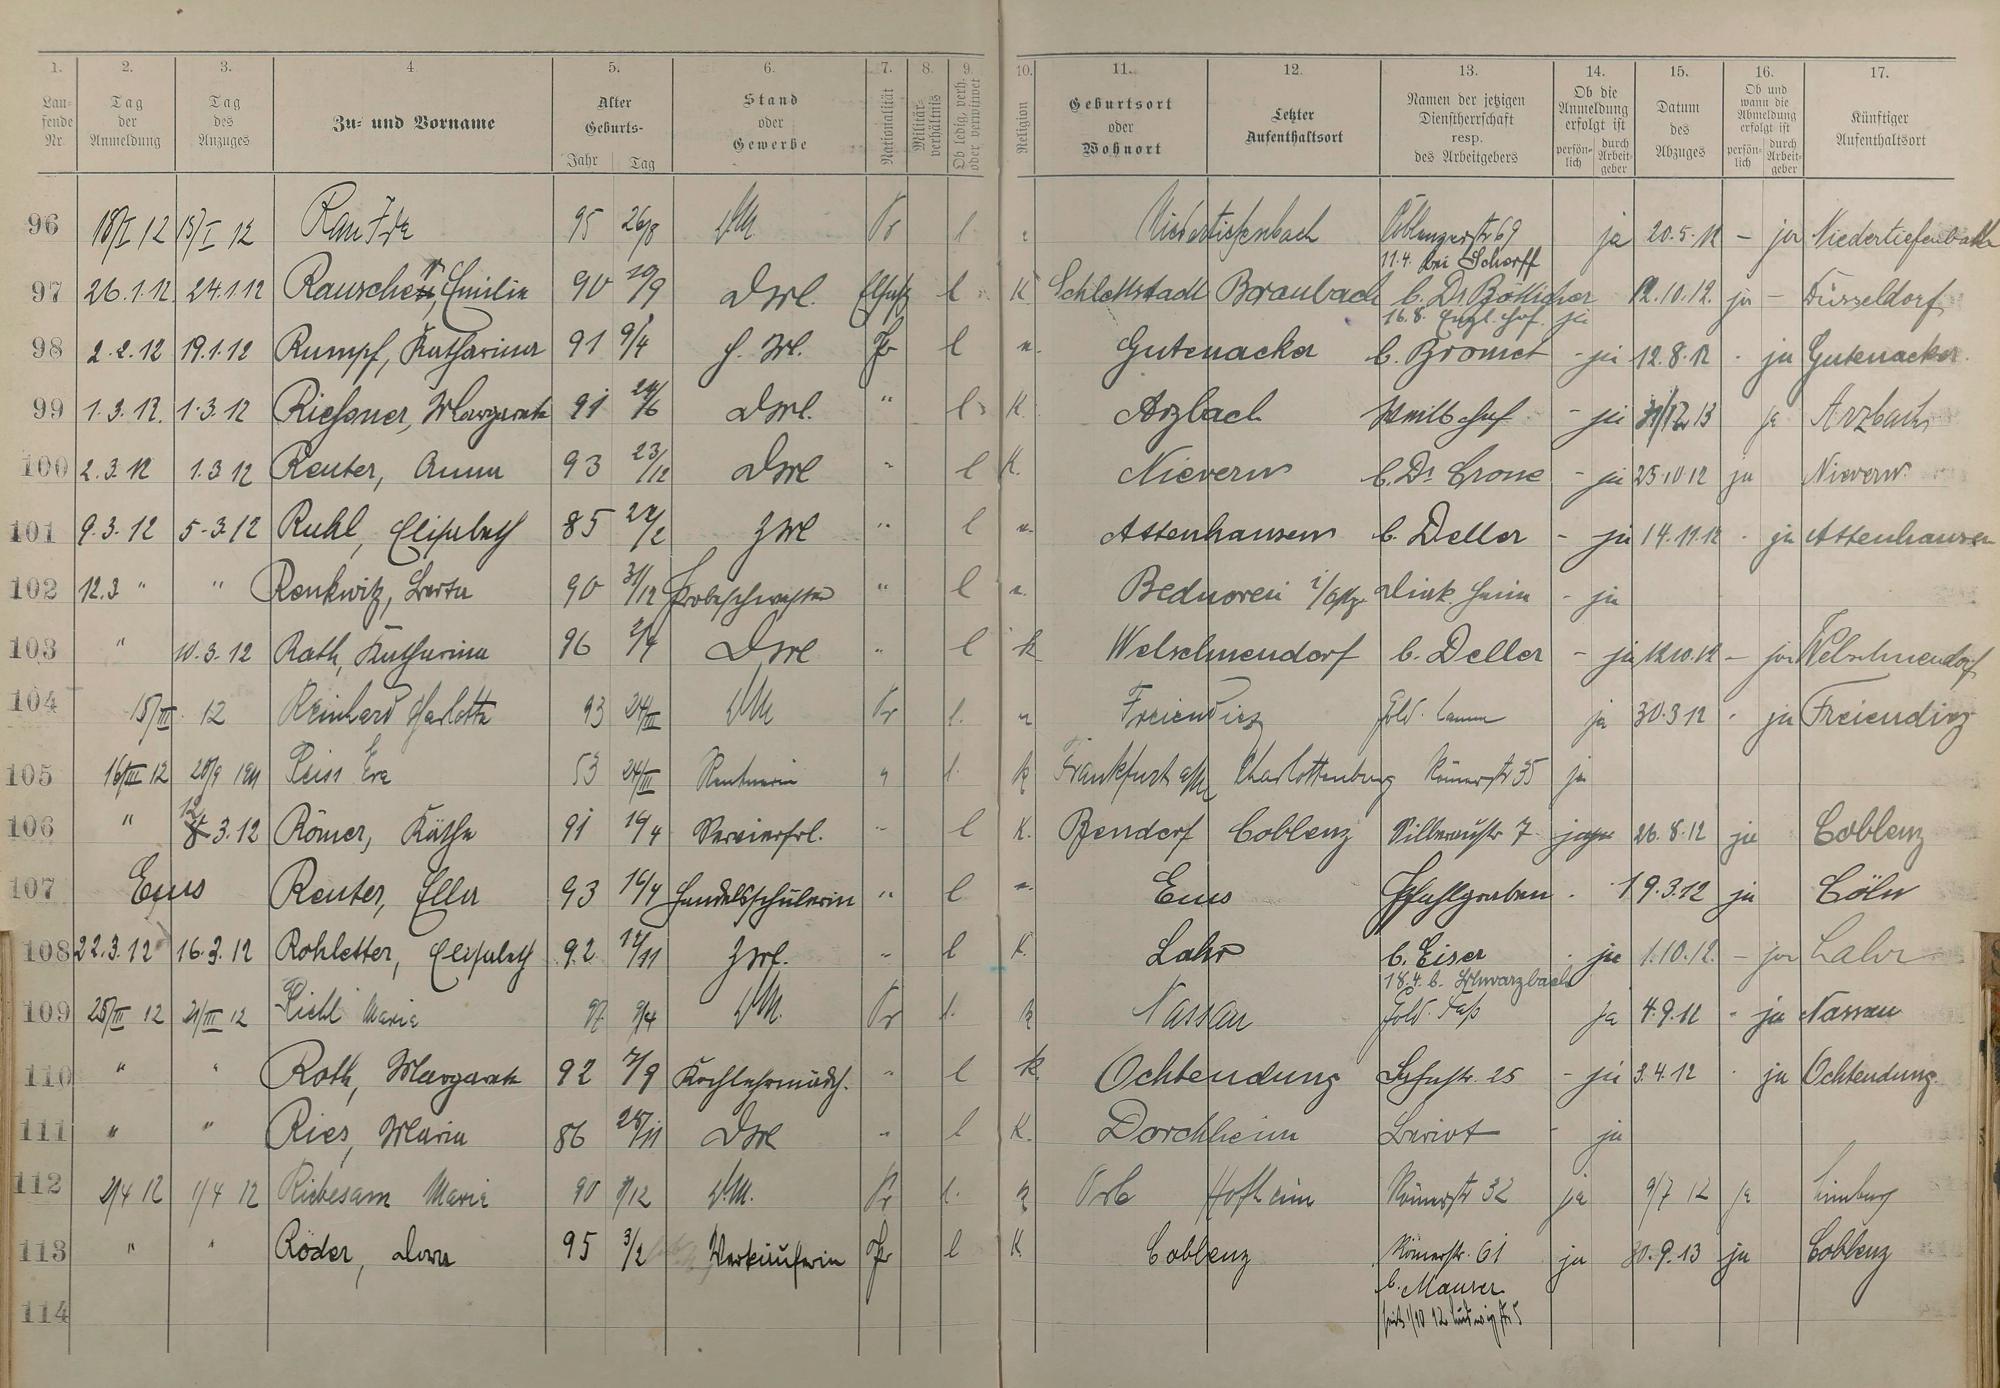 1. 2. 3. 4. 5. 6. 7. 8. 9. 10. 11. 12. 13. 14. 15. 16. 17.
Lau-fende Nr. Tag der Anmeldung Tag des Anzuges Zu- und Vorname Alter Geburts- Jahr Tag Stand oder Gewerbe Nationalität Militär-verhältnis Ob ledig, verh. oder verwitwet Religion Geburtsort oder Wohnort Letzter Aufenthaltsort Namen der jetzigen Dienstherrschaft resp. des Arbeitgebers Ob die Anmeldung erfolgt ist persön-lich durch Arbeit-geber Datum des Abzuges Ob und wann die Abmeldung erfolgt ist persön-lich durch Arbeit-geber Künftiger Aufenthaltsort
96 18/I 12 15/I 12 Rau Ida 95 26/8 DM Pr l. Niedertiefenbach Coblenzerstr 69 ja 20.5.12 – ja Niedertiefenbach
11.4. bei Schorff
97 26.1.12 24.1.12 Rauscher, Emilie 90 10/9 Dml. Elsaß l K Schlettstadt Braubach b. Dr. Bötticher 12.10.12. ja – Düsseldorf
16.8. Engl. Hof. ja
98 2.2.12 19.1.12 Rumpf, Katharina 91 9/4 H. Ml. Pr l Gutenacker b. Bromet - ja 12.8.12 . ja Gutenacker.
99 1.3.12. 1.3.12 Rießner, Margarete 91 24/6 Dml. " l K. Arzbach - ja 12 13 ja Arzbach
100 2.3.12 1.3 12 Reuter, Anna 93 23/12 Dml " l K. Nievern b. Dr. Crone - ja 25.10 12 ja Nievern.
101 9.3.12 5.3.12 Ruhl, Elisabeth 85 /2 Zml " l Attenhausen b. Deller - ja 14.11.12 . ja Attenhausen
102 12.3 " " Renkwitz, Berta 90 31/12 Probeschwester " l Diak. Heim - ja
103 " 10.3.12 Rath, Katharina 96 2/4 Dml " l K Welschneudorf b. Deller - ja 12.10.12 – ja Welschneudorf
104 15/III 12 Reinhard Charlotte 93 24/III DM Pr l. Freiendiez Gold. Lamm ja 30.3 12 . ja Freiendiez
105 16/III 12 20/9 1911 Reiss Eva 53 24/III Rentnerin " l. K Frankfurt a/M Charlottenburg Römerstr 35 ja
106 " 12 3.12 Römer, Käthe 91 14/4 l K. Bendorf Coblenz Silberaustr 7 26.8.12 ja Coblenz
107 Ems Reuter, Ella 93 16/4 Handelsschülerin " l Ems Pfahlgraben . 19.3.12 ja Cöln
108 22.3.12 16.3.12 Rohletter, Elisabeth 92 12/11 Zml. " l K. Lahr b. Eiser . ja 1.10.12. – ja Lahr
18.4. b. Schwarzbach
109 25/III 12 21/III 12 Riehl Marie 97 9/4 DM. Pr l. K Nassau Gold. Faß ja 4.9.12 - ja Nassau
110 " " Roth, Margarete 92 7/9 Kochlehrmädch. " l K Ochtendung 25 - ja 3.4.12 . ja Ochtendung.
111 " " Ries, Maria 86 25/11 Dml " l K. Dorchheim - ja
112 2/4 12 1/4 12 Riebesam Marie 90 /12 D.M. Pr l. K Orb Hofheim Römerstr 32 ja 9/7 12 ja Limburg
113 " " Röder, Dora 95 3/2 Verkäuferin Pr l K Coblenz Römerstr. 61 ja 30.9.13 ja Coblenz
b. Maurer
114 1/10 12 Ludwigstr 5